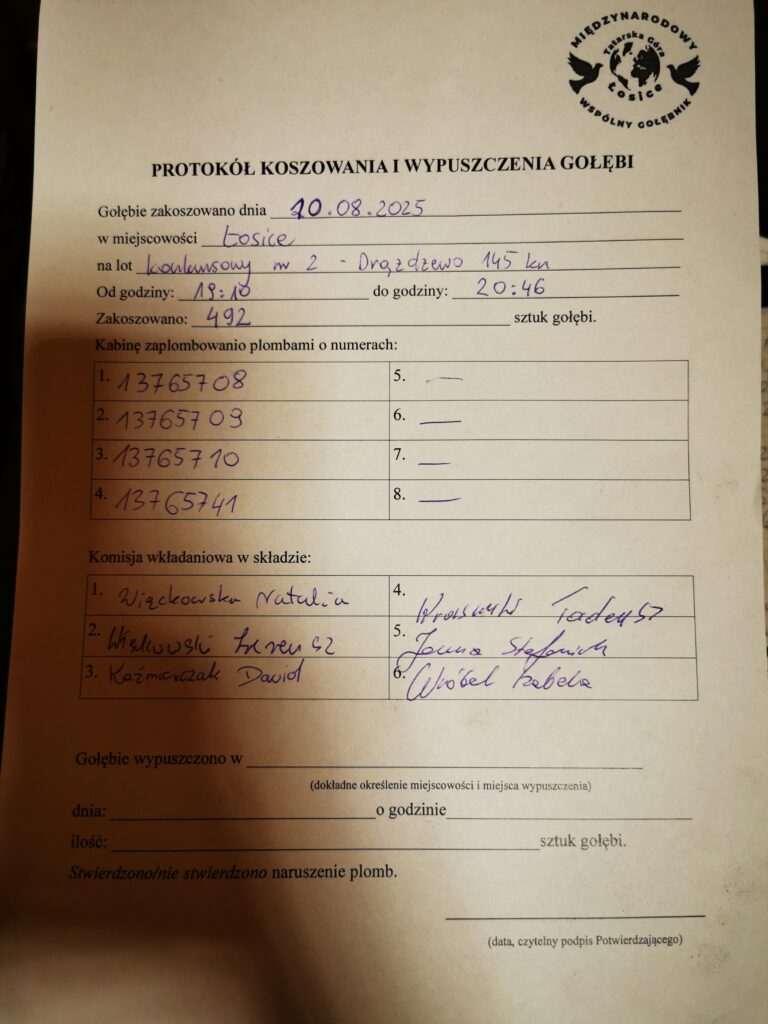 MIĘDZYNARODOWY
Tatarska Góra
Łosice
WSPÓLNY GOŁĘBNIK
PROTOKÓŁ KOSZOWANIA I WYPUSZCZENIA GOŁĘBI
Gołębie zakoszowano dnia 10.08.2025
w miejscowości Łosice
na lot konkursowy nr 2 - Drążdżewo 145 km
Od godziny: 19:10 do godziny: 20:46
Zakoszowano: 492 sztuk gołębi.
Kabinę zaplombowanio plombami o numerach:
1. 13765708 5. —
2. 13765709 6. —
3. 13765710 7. —
4. 13765741 8. —
Komisja wkładaniowa w składzie:
1. Więckowska Natalia 4. Tadeusz
2. Ireneusz 5.
3. Kaźmierczak Dawid 6. Wróbel Izabela
Gołębie wypuszczono w
(dokładne określenie miejscowości i miejsca wypuszczenia)
dnia: o godzinie
ilość: sztuk gołębi.
Stwierdzono/nie stwierdzono naruszenie plomb.
(data, czytelny podpis Potwierdzającego)